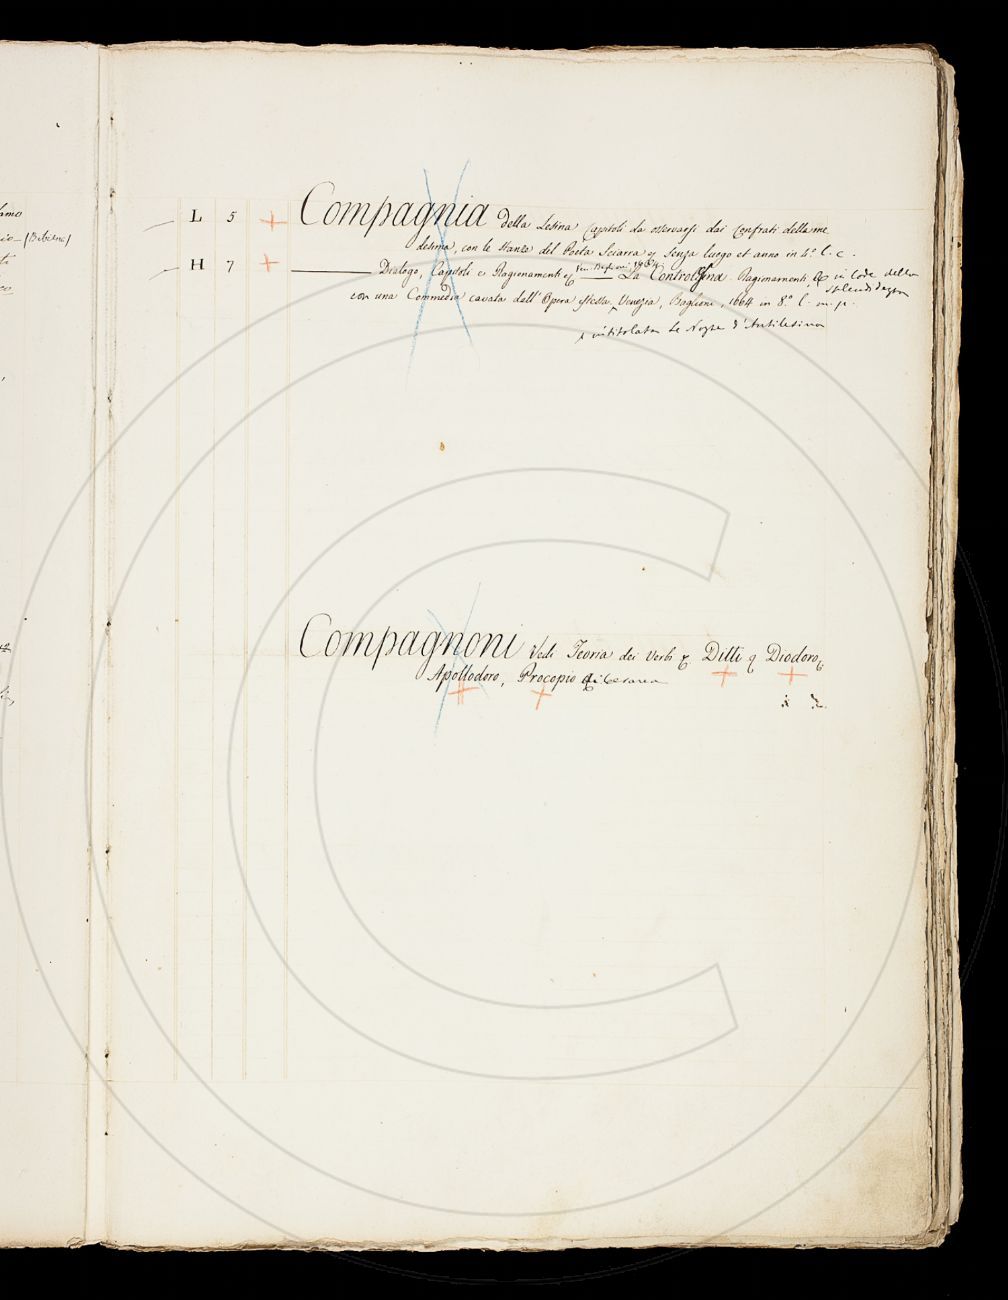 amo
(Bibiena)
L 5 Compagnia della Lesina Capitoli da osservarsi dai Confrati della me
desima, con le stanze del Poeta Sciarra & senza luogo et anno in 4.° l. c.
Ven. Baglioni 1664
H 7 Dialogo, Capitoli e Ragionamenti & La Controlesina. Ragionamenti, & in lode della
splendidezza
con una Commedia cavata dell'Opera stessa, Venezia, Baglioni, 1664 in 8.° l. m. p.
x intitolata Le Nozze d'Antilesina
Compagnoni Vedi Teoria dei Verbi & Ditti & Diodoro,
Apollodoro, Procopio di Cesarea